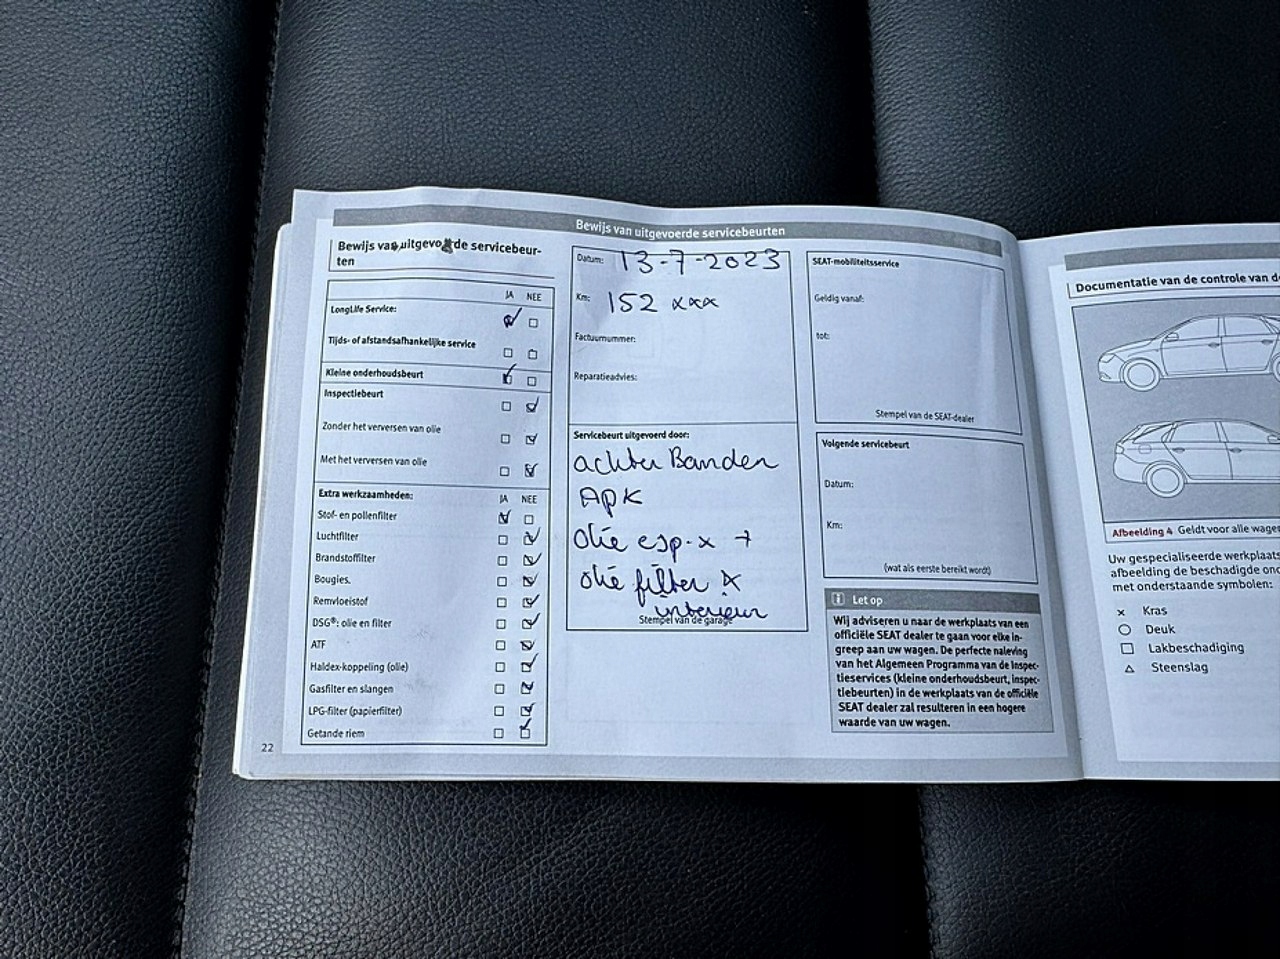 Bewijs van uitgevoerde servicebeurten
Bewijs van uitgevoerde servicebeur-
ten
JA NEE
LongLife Service:
Tijds- of afstandsafhankelijke service
Kleine onderhoudsbeurt
Inspectiebeurt
Zonder het verversen van olie
Met het verversen van olie
Extra werkzaamheden: JA NEE
Stof- en pollenfilter
Luchtfilter
Brandstoffilter
Bougies.
Remvloeistof
DSG®: olie en filter
ATF
Haldex-koppeling (olie)
Gasfilter en slangen
LPG-filter (papierfilter)
Getande riem
22
Datum: 13-7-2023
Km: 152 xxx
Factuurnummer:
Reparatieadvies:
Servicebeurt uitgevoerd door:
achter Banden
APK
olie esp. x +
olie filter x
interieur
Stempel van de garage
SEAT-mobiliteitsservice
Geldig vanaf:
tot:
Stempel van de SEAT-dealer
Volgende servicebeurt
Datum:
Km:
(wat als eerste bereikt wordt)
i Let op
Wij adviseren u naar de werkplaats van een
officiële SEAT dealer te gaan voor elke in-
greep aan uw wagen. De perfecte naleving
van het Algemeen Programma van de Inspec-
tieservices (kleine onderhoudsbeurt, inspec-
tiebeurten) in de werkplaats van de officiële
SEAT dealer zal resulteren in een hogere
waarde van uw wagen.
Documentatie van de controle van
Afbeelding 4 Geldt voor alle
Uw gespecialiseerde
afbeelding de beschadigde
met onderstaande symbolen:
Kras
Deuk
Lakbeschadiging
Steenslag